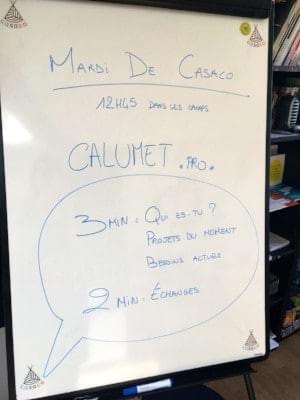 MARDI DE CASACO
12H45 DANS LES CANAPS
CALUMET.PRO.
3 MIN : QUI ES-TU ?
PROJETS DU MOMENT
BESOINS ACTUELS
2 MIN : ÉCHANGES
CASACO
CASACO